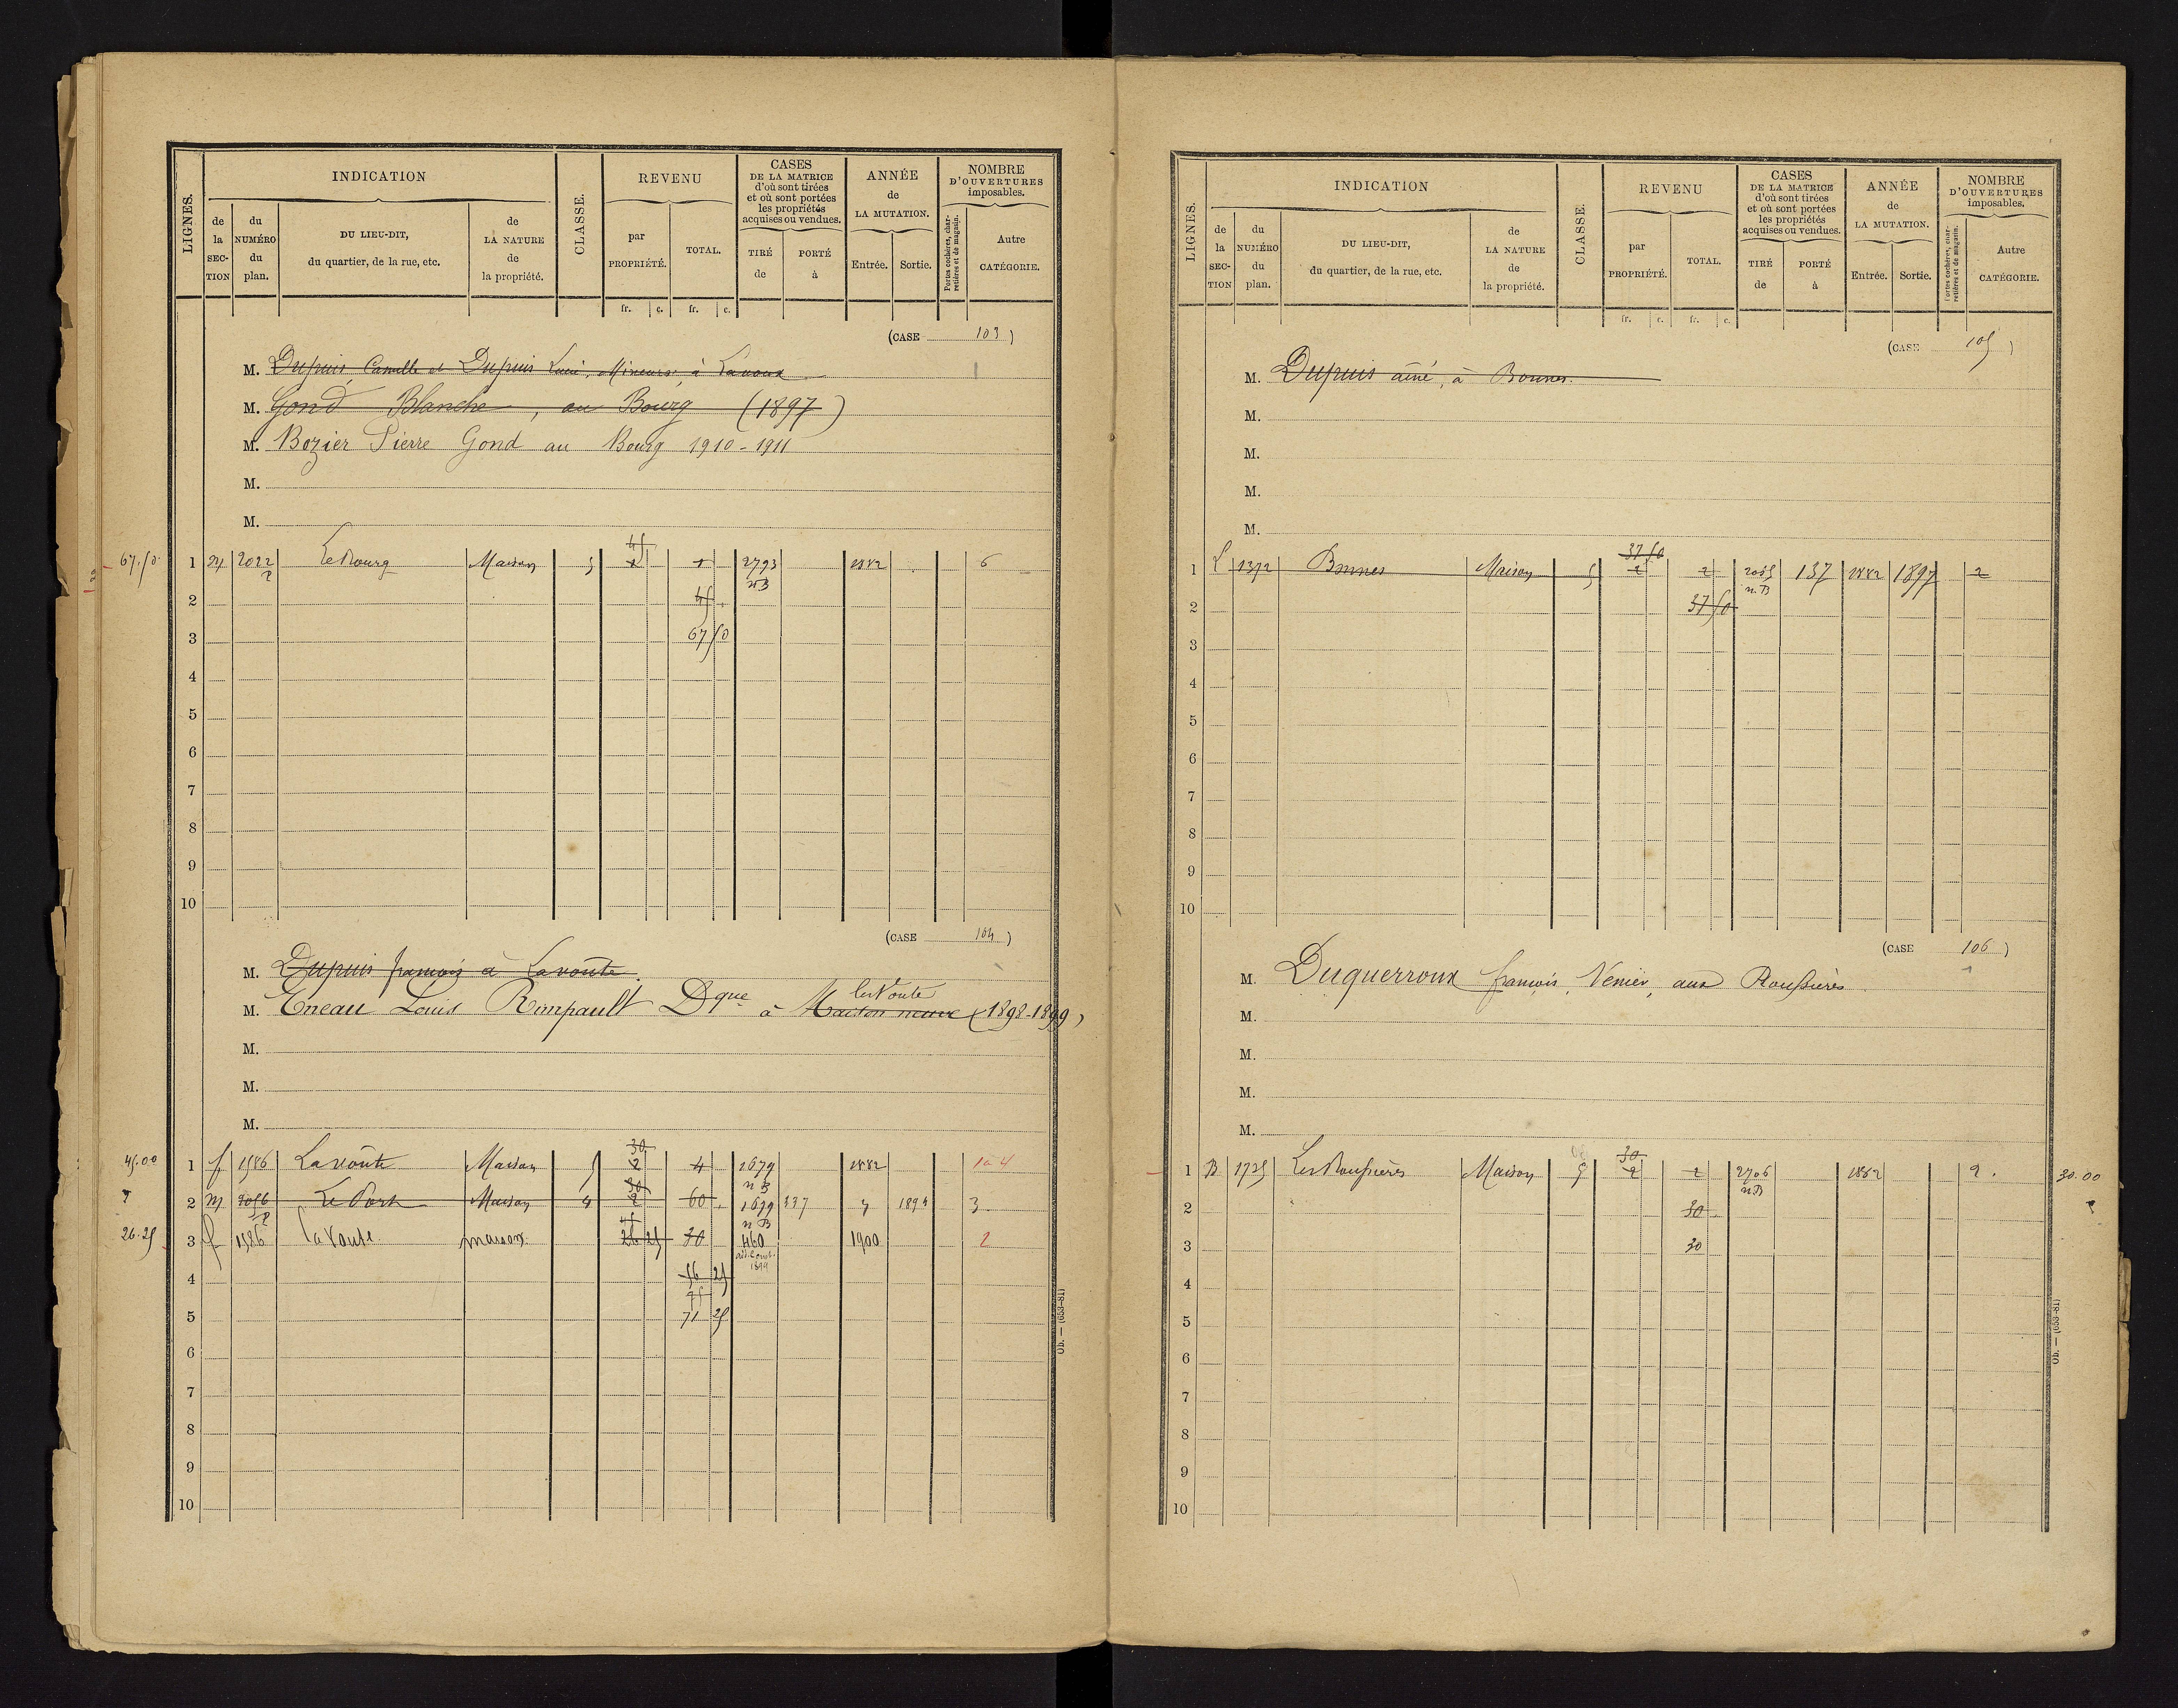 LIGNES.
INDICATION
CLASSE.
REVENU
CASES
DE LA MATRICE
d'où sont tirées
et où sont portées
les propriétés
acquises ou vendues.
ANNÉE
de
LA MUTATION.
NOMBRE
D'OUVERTURES
imposables.
de la SECTION
du NUMÉRO du plan.
DU LIEU-DIT,
du quartier, de la rue, etc.
de LA NATURE de la propriété.
par PROPRIÉTÉ.
TOTAL.
TIRÉ de
PORTÉ à
Entrée.
Sortie.
Portes cochères, charretières et de magasin.
Autre CATÉGORIE.
fr. c. fr. c.
(CASE 103)
M. Dupuis Camille et Dupuis Lucie, Mineurs, à Lavoux
M. Gond Blanche, au Bourg (1897)
M. Bozier Pierre Gond au Bourg 1910-1911
M.
M.
45
67.50 1 2022 Le Bourg Maison 5 2793 1882 6
p nB
2 45
3 67 50
4
5
6
7
8
9
10
(CASE 104)
M. Dupuis françois à Lavoûte
les Voute
M. Eneau Louis Rimpault Dque à Maison neuve (1898-1899)
M.
M.
M.
30
45.00 1 f 1586 Lavoûte Maison 5 2 4 1679 1882
30 nB
2 M Le Port Maison 4 2 60 1679 337 1894 3
45 nB
26.25 3 f 1586 la Voute maison 26 25 30 460 1900 2
1899
4 56 25
5 71 25
6
7
8
9
10
Ob. — (653-81)
LIGNES.
INDICATION
CLASSE.
REVENU
CASES
DE LA MATRICE
d'où sont tirées
et où sont portées
les propriétés
acquises ou vendues.
ANNÉE
de
LA MUTATION.
NOMBRE
D'OUVERTURES
imposables.
de la SECTION
du NUMÉRO du plan.
DU LIEU-DIT,
du quartier, de la rue, etc.
de LA NATURE de la propriété.
par PROPRIÉTÉ.
TOTAL.
TIRÉ de
PORTÉ à
Entrée.
Sortie.
Portes cochères, charretières et de magasin.
Autre CATÉGORIE.
fr. c. fr. c.
(CASE 105)
M. Dupuis ainé, à Bonnes.
M.
M.
M.
M.
37 50
1 1372 Bonnes Maison 5 2 2 137 1882 1897 2
n.B
2 37 50
3
4
5
6
7
8
9
10
(CASE 106)
M. Duquerroux françois, Venier, aux Roussières
M.
M.
M.
M.
30
1 B 1725 Les Roussières Maison 5 2 2 2706 1882 2. 30.00
nB
2 30
3 30
4
5
6
7
8
9
10
Ob. — (653-81)